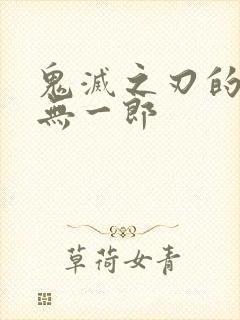 鬼滅之刃的
無一郎
草荷女青